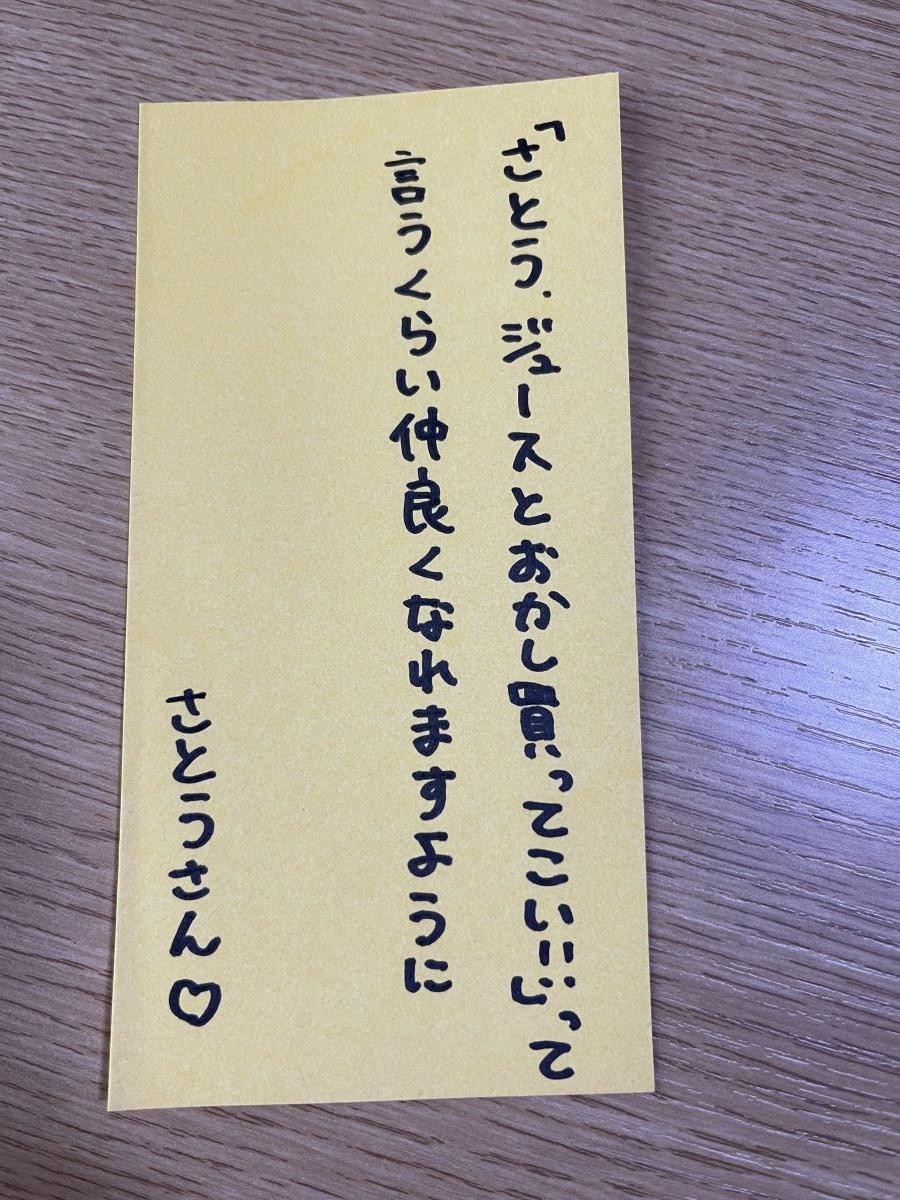 「さとう、ジュースとおかし買ってこい!!」って
言うくらい仲良くなれますように
さとうさん♡